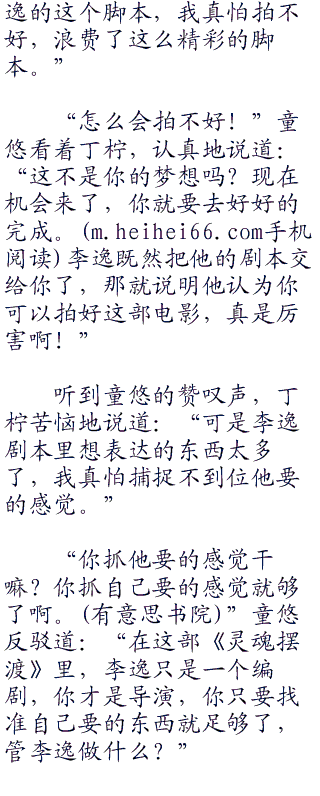 逸的这个脚本，我真怕拍不
好，浪费了这么精彩的脚
本。”
“怎么会拍不好！”童
悠看着丁柠，认真地说道：
“这不是你的梦想吗？现在
机会来了，你就要去好好的
完成。(m.heihei66.com手机
阅读)李逸既然把他的剧本交
给你了，那就说明他认为你
可以拍好这部电影，真是厉
害啊！”
听到童悠的赞叹声，丁
柠苦恼地说道：“可是李逸
剧本里想表达的东西太多
了，我真怕捕捉不到位他要
的感觉。”
“你抓他要的感觉干
嘛？你抓自己要的感觉就够
了啊。(有意思书院)”童悠
反驳道：“在这部《灵魂摆
渡》里，李逸只是一个编
剧，你才是导演，你只要找
准自己要的东西就足够了，
管李逸做什么？”